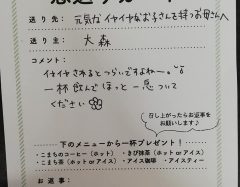 送り先： 元気がイヤイヤなお子さんを持つお母さんへ
送り主： 大森
コメント：
イヤイヤされるとつらいですよねー。
一杯飲んでほっと一息ついて
ください
召し上がったらお返事を
お願いします♪
下のメニューから一杯プレゼント！
・こまちのコーヒー（ホット）・きび抹茶（ホット or アイス）
・こまち茶（ホット or アイス）・アイス珈琲 ・アイスティー
お返事：